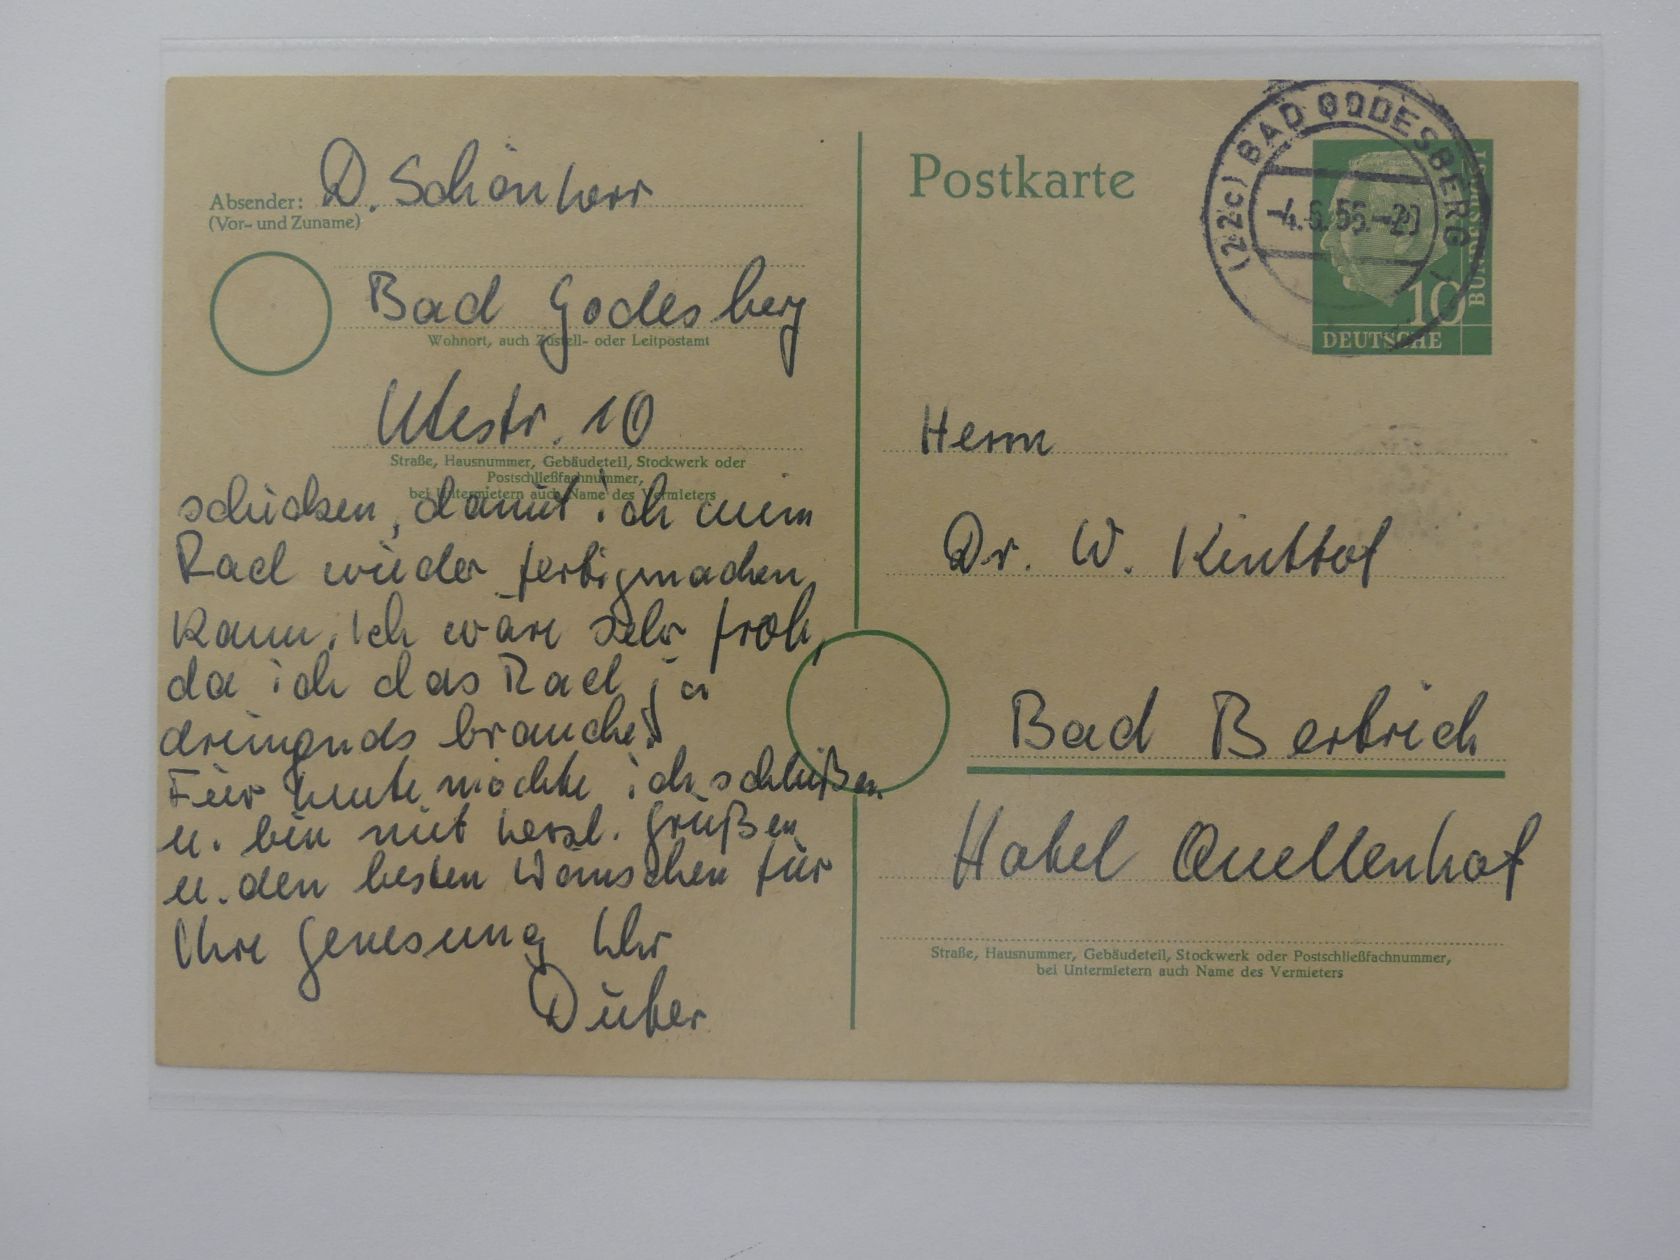 Absender: D. Schönherr
(Vor- und Zuname)
Bad Godesberg
Wohnort, auch Zustell- oder Leitpostamt
Utestr. 10
Straße, Hausnummer, Gebäudeteil, Stockwerk oder
Postschließfachnummer,
bei Untermietern auch Name des Vermieters
schicken, damit ich mein
Rad wieder fertigmachen
kann. Ich wäre sehr froh,
da ich das Rad ja
dringends brauche!
Für heute möchte ich schließen
u. bin mit herzl. Grüßen
u. den besten Wünschen für
Ihre Genesung Ihr
Postkarte
(22c) BAD GODESBERG
-4.6.56.-20
10
DEUTSCHE
BUNDESPOST
Herrn
Dr. W. Kinttof
Bad Bertrich
Hotel Quellenhof
Straße, Hausnummer, Gebäudeteil, Stockwerk oder Postschließfachnummer,
bei Untermietern auch Name des Vermieters